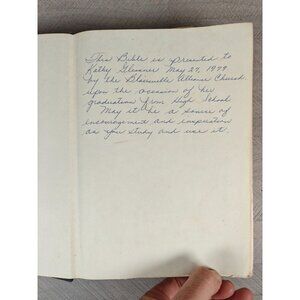 This Bible is presented to
Kathy Glessner May 27, 1979
by the Blairsville Alliance Church
upon the occasion of her
graduation from High School
May it be a source of
encouragement and inspiration
as you study and use it.